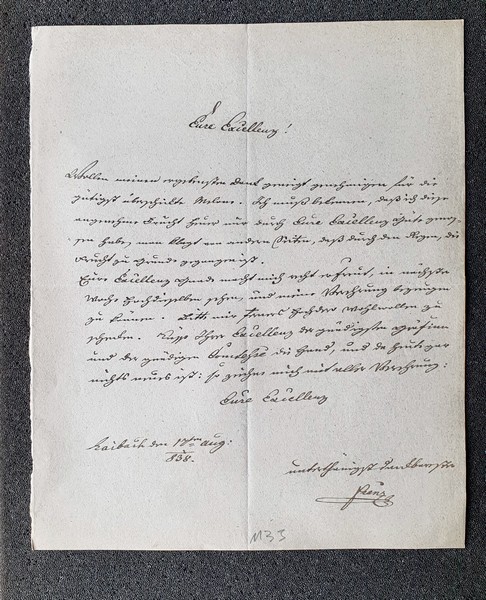 Eure Excellenz!
Wollen meinen ergebensten Dank geneigt genehmigen für die
gütigst überschikte Melone. Ich muß bekennen, daß ich diese
angenehme Frucht heuer nur durch Eure Excellenz Güte genos-
sen habe, man klagt von andern Seiten, daß durch den Regen, die
Frucht zu Grunde gegangen ist.
Eure Excellenz Gnade macht mich recht erfreut, in nächster
Woche Hochdieselben sehen, und meine Verehrung bezeugen
zu können. Bitte mir ferners Hochder Wohlwollen zu
schenken. Küsse Ihrer Excellenz der gnädigsten Gräfinn
und der gnädigen Comtesse die Hand, und da heut gar
nichts neues ist: so zeichne mich mit aller Verehrung:
Eure Excellenz
Laibach den 17ten Aug:
838.
unterthänigst dankbarster
Franz
M33